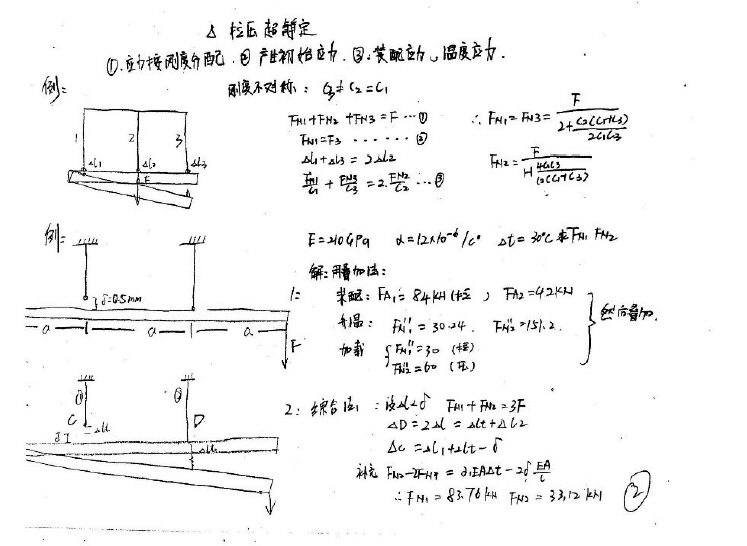 △ 拉压超静定
①.应力按刚度分配.② 产生初始应力.③.装配应力、温度应力.
例:
刚度不对称: C₃≠C₂=C₁
1 2 3
Δl₁ Δl₂ Δl₃
F
F_N1+F_N2+F_N3=F…①
F_N1=F_3 ……②
Δl₁+Δl₃=2Δl₂
F_N1/C₁+F_N3/C₃=2·F_N2/C₂…③
∴F_N1=F_N3=F/(2+C₂(C₁+C₃)/2C₁C₃)
F_N2=F/(1+4C₁C₃/C₂(C₁+C₃))
例:
E=210GPa α=12×10⁻⁶/C° Δt=30°C 求F_N1 F_N2
δ=0.5mm
a a a
F
解:用叠加法:
1: 装配: F_A1'=84KN(拉), F_A2=42KN
升温: F_N1''=30.24. F_N2''=151.2.
加载 F_N1''=30(拉)
F_N2''=60(压)
然后叠加.
① ②
C D
δ Δl₁
2: 综合法: 设Δl<δ F_N1+F_N2=3F
ΔD=2Δl=Δlt+Δl₂
Δc=Δl₁+Δlt-δ
补充 EAΔt-2δEA/l
∴F_N1=83.76KN F_N2=33.12KN
②